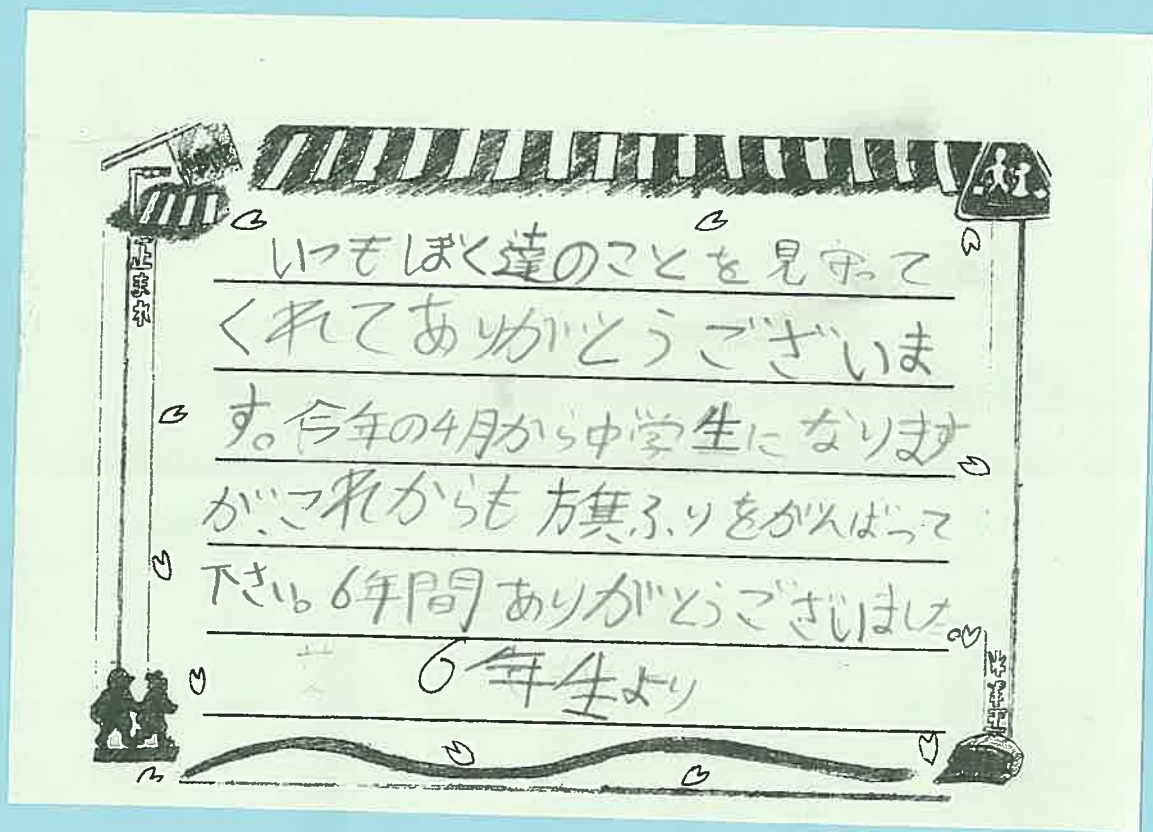 いつもぼく達のことを見守って
くれてありがとうございま
す。今年の4月から中学生になります
が、これからも旗ふりをがんばって
下さい。6年間ありがとうございました。
6年生より
止まれ
止まれ